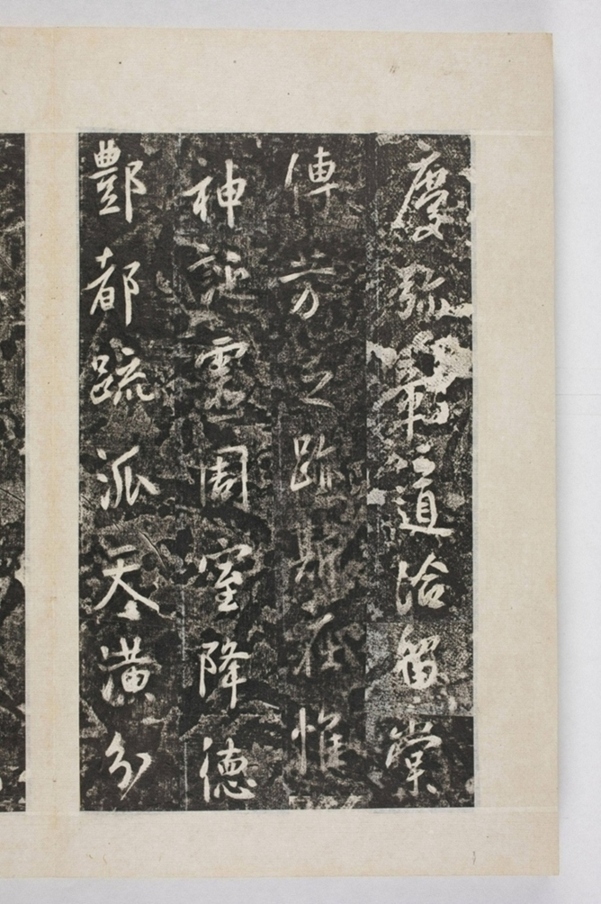 慶弥彰道洽留棠
傳芳之跡斯在惟
神誕靈周室降德
酆都疏派天潢分